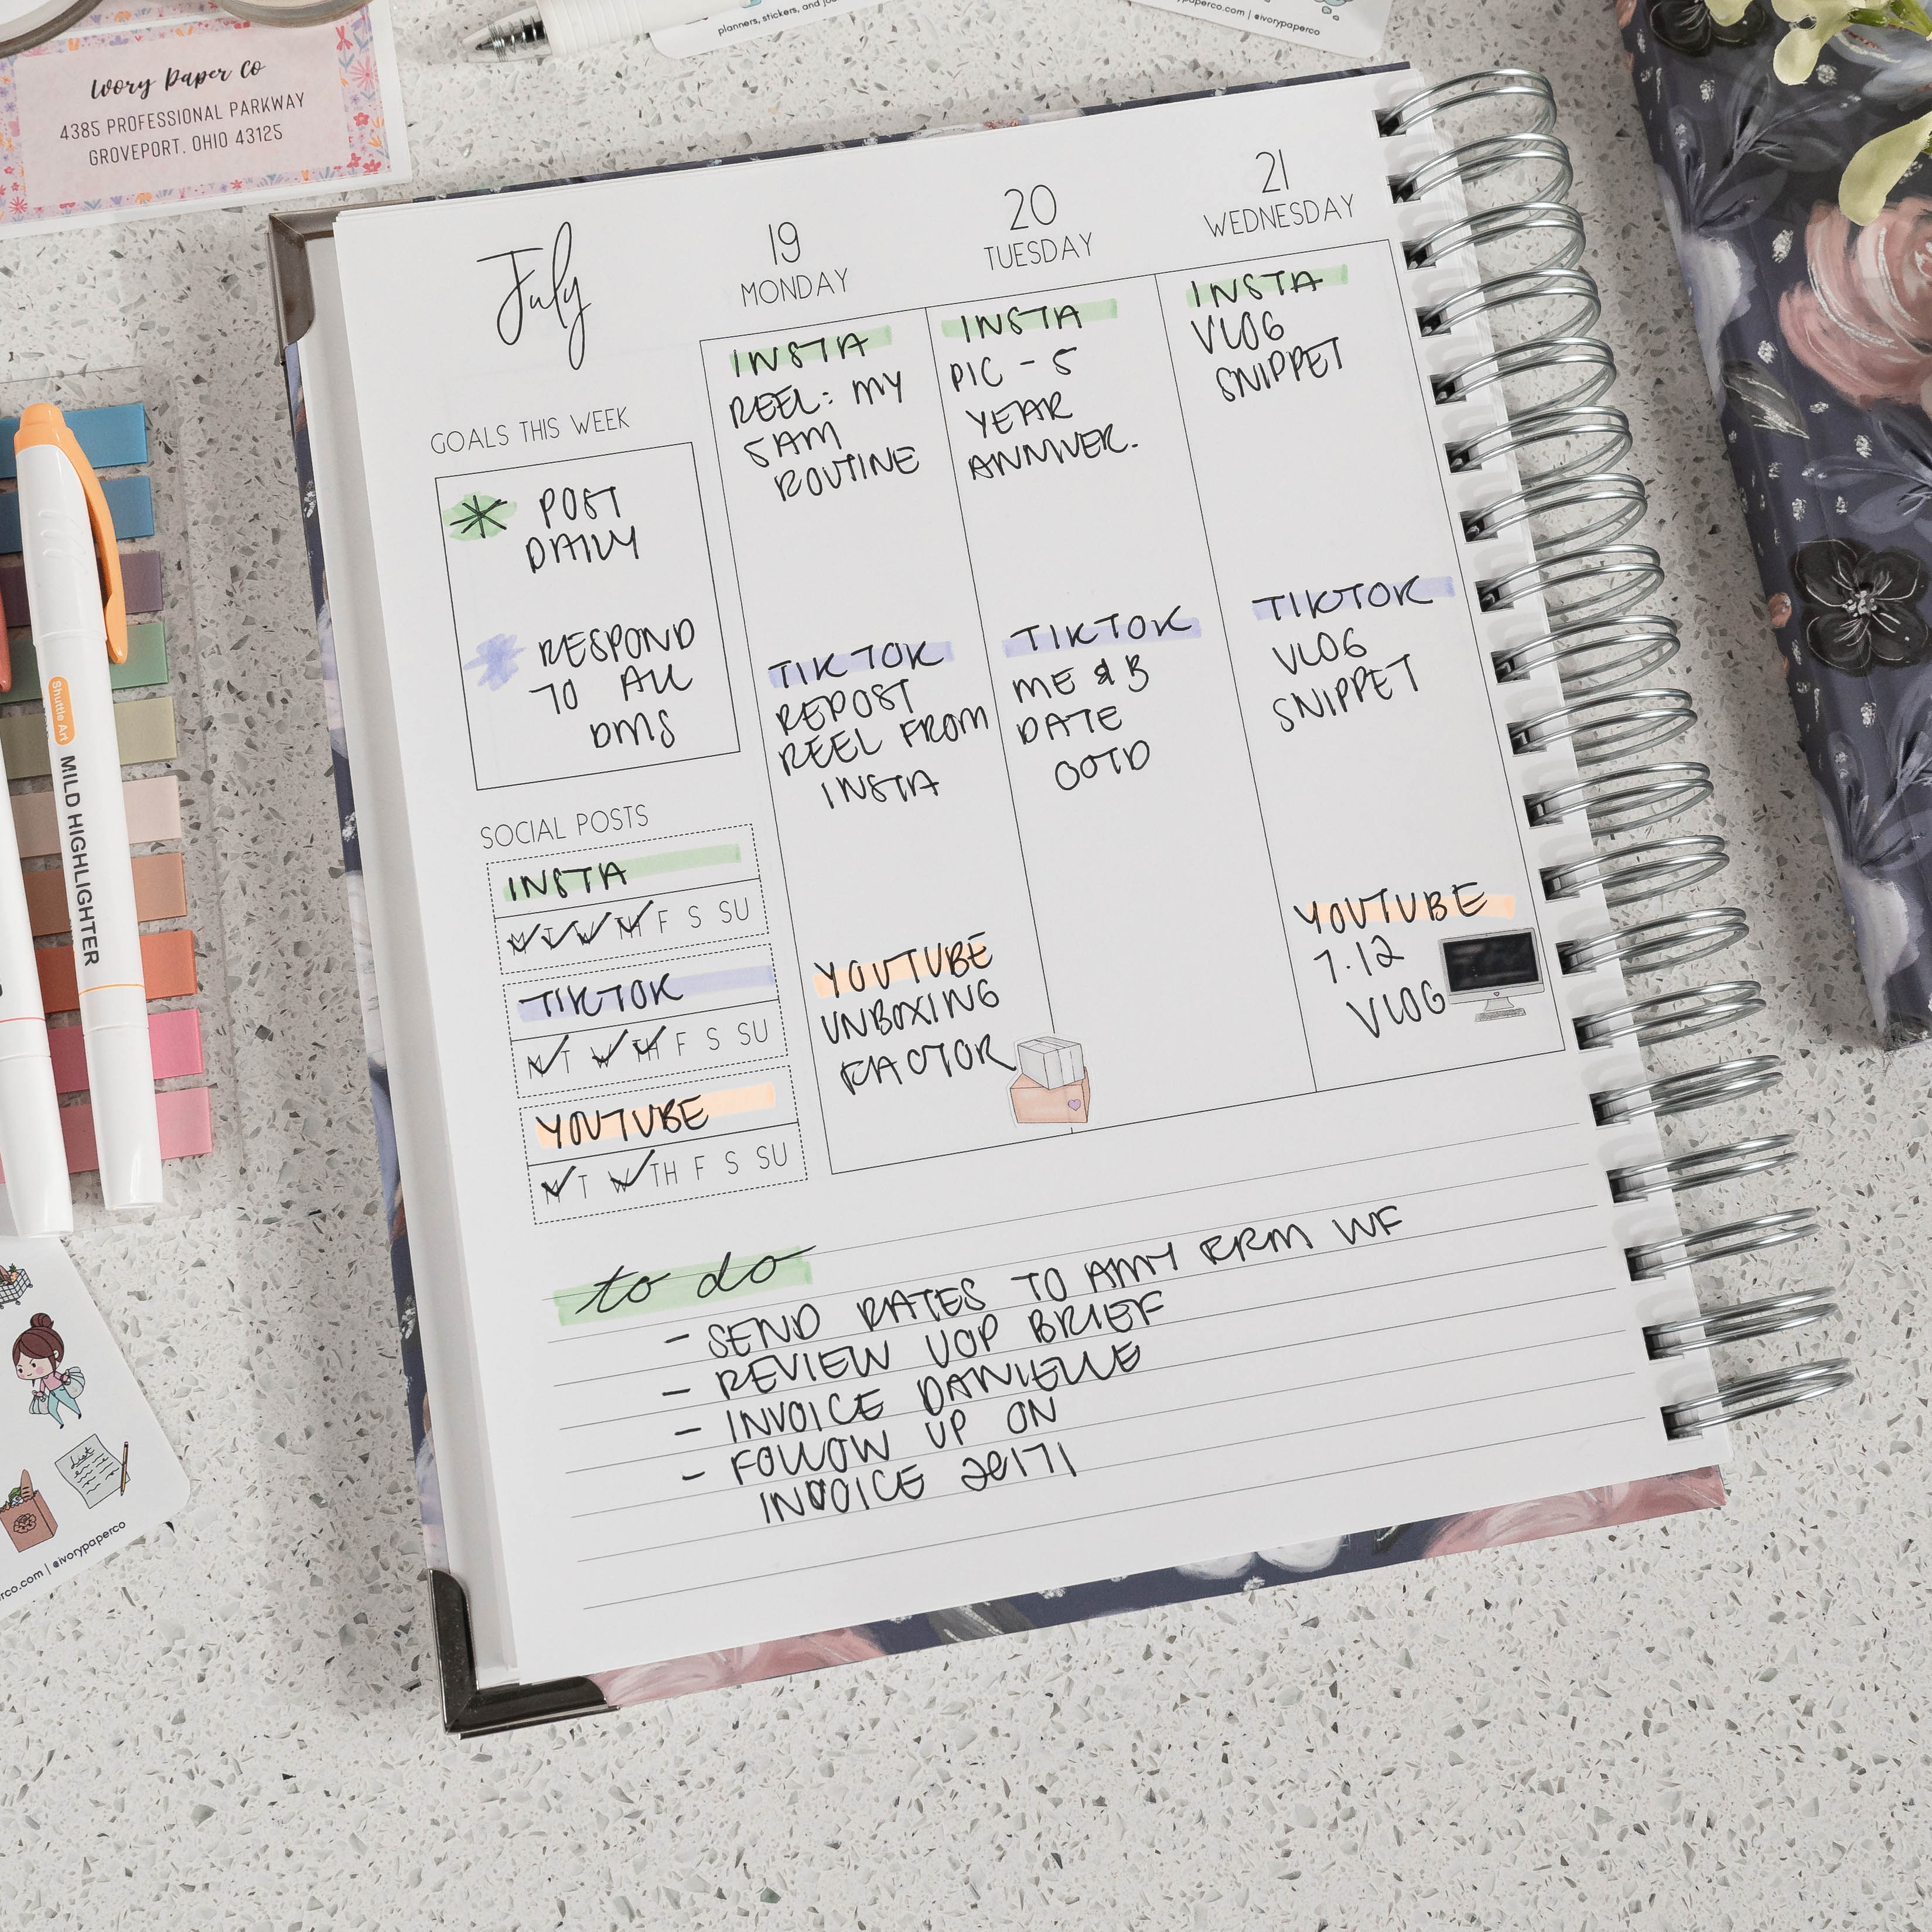 planners, stickers, and jou
perco.com | @ivorypaperco
Ivory Paper Co
4385 PROFESSIONAL PARKWAY
GROVEPORT, OHIO 43125
July
19
MONDAY
20
TUESDAY
21
WEDNESDAY
GOALS THIS WEEK
POST
DAILY
RESPOND
TO ALL
DMS
SOCIAL POSTS
INSTA
M T W TH F S SU
TIKTOK
M T W TH F S SU
YOUTUBE
M T W TH F S SU
INSTA
REEL: MY
5AM
ROUTINE
TIKTOK
REPOST
REEL FROM
INSTA
YOUTUBE
UNBOXING
FACTOR
INSTA
PIC - 5
YEAR
ANNIVER.
TIKTOK
ME & B
DATE
OOTD
INSTA
VLOG
SNIPPET
TIKTOK
VLOG
SNIPPET
YOUTUBE
7.12
VLOG
to do
- SEND RATES TO AMY WF
- REVIEW UOP BRIEF
- INVOICE DANIELLE
- FOLLOW UP ON
INVOICE
Shuttle Art
MILD HIGHLIGHTER
List
rco.com | @ivorypaperco